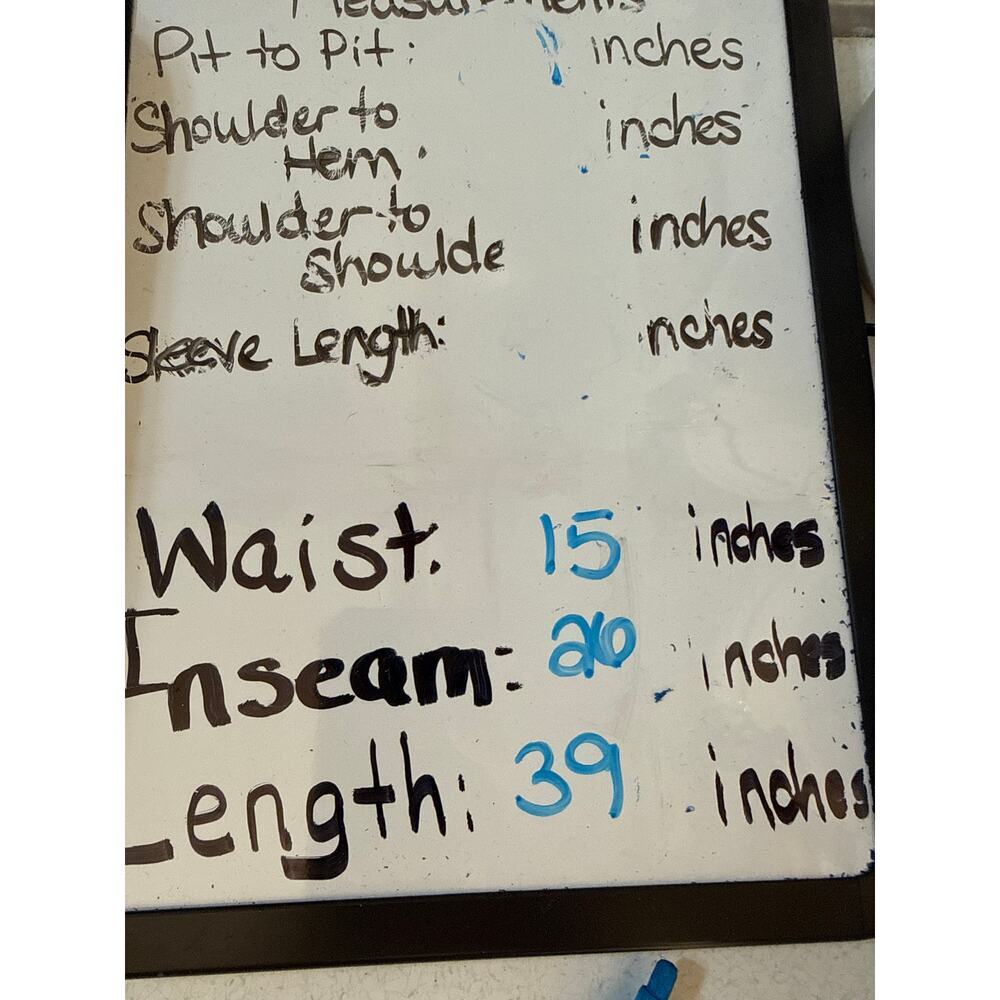 Measurements
Pit to Pit: inches
Shoulder to inches
Hem.
Shoulder to inches
Shoulde
Sleeve Length: nches
Waist. 15 inches
Inseam: 26 inches
Length: 39 inches